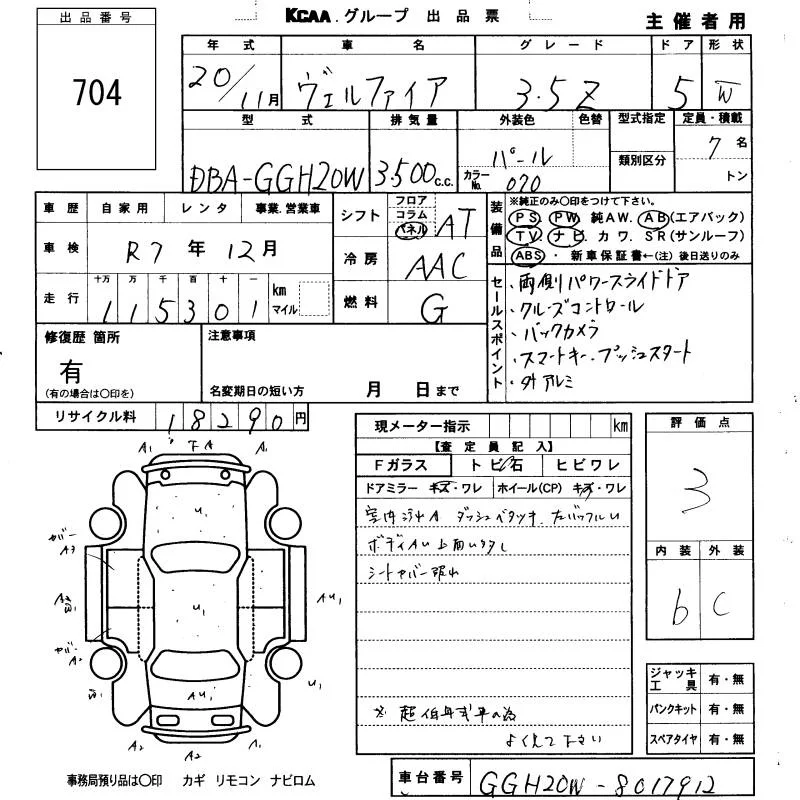 出品番号
704
KCAA.グループ 出品票
主催者用
年式 車名 グレード ドア 形状
20/11月 ヴェルファイア 3.5Z 5 W
型式 排気量 外装色 色替 型式指定 定員・積載
DBA-GGH20W 3.500c.c. パール
カラーNo. 070
類別区分
7名
トン
車歴 自家用 レンタ 事業.営業車
車検 R7年12月
走行 十万 万 千 百 十 一
115301 km マイル
シフト フロア コラム パネル AT
冷房 AAC
燃料 G
装備品
※純正のみ○印をつけて下さい。
PS. PW 純AW. AB(エアバック)
TV. ナビ カワ. SR(サンルーフ)
ABS ・ 新車保証書←(注)後日送りのみ
セールスポイント
・両側パワースライドドア
・クルーズコントロール
・バックカメラ
・スマートキー.プッシュスタート
・外アルミ
修復歴 箇所
有
(有の場合は○印を)
注意事項
名変期日の短い方 月 日まで
リサイクル料 18290円
現メーター指示 km
【査定員記入】
Fガラス トビ石 ヒビワレ
ドアミラー キズ・ワレ ホイール(CP) キズ・ワレ
室内汚れA ダッシュベタツキ.
ボディAU
シートカバー
よく見て下さい
評価点
3
内装 外装
b C
ジャッキ 工具 有・無
パンクキット 有・無
スペアタイヤ 有・無
A1 FA A1
U1
カバー
A3
U1
AU1
カバー
U1
AU1
A2 A2 A1
事務局預り品は○印 カギ リモコン ナビロム
車台番号 GGH20W-8017912